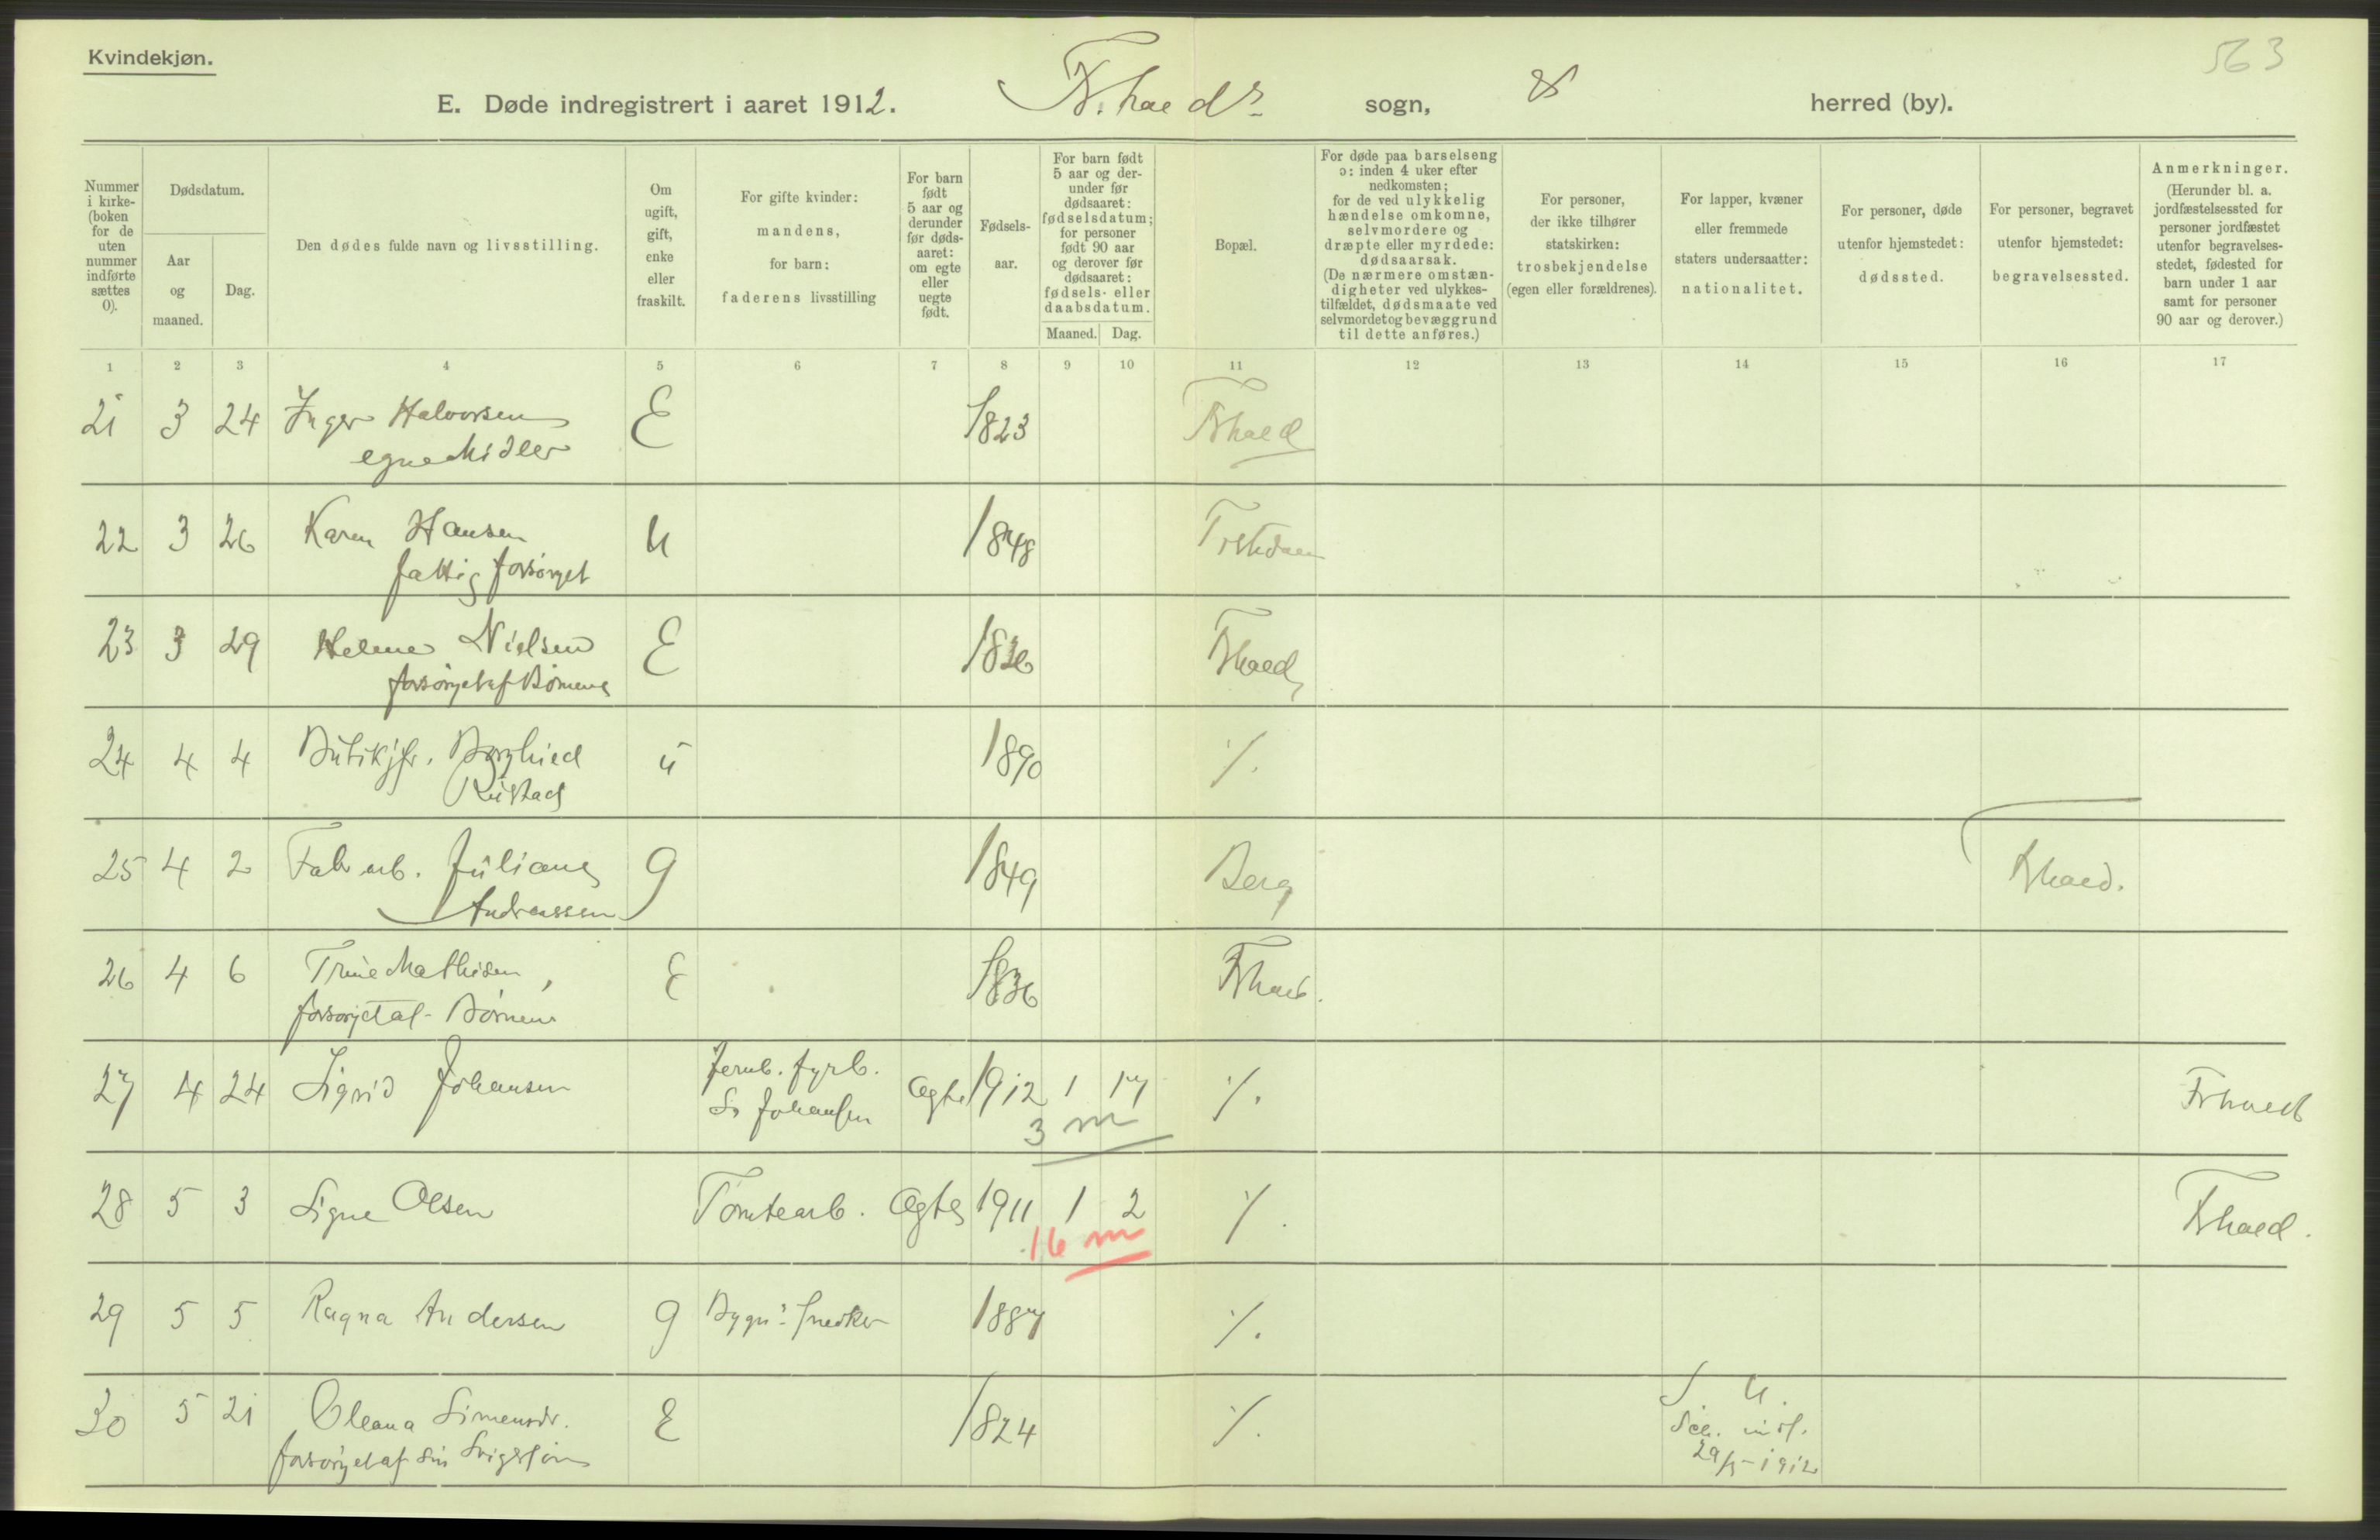 Kvindekjøn.
563
E. Døde indregistrert i aaret 1912. Fr.halds sogn, herred (by).
Nummer i kirkeboken for de uten nummer indførte sættes 0).
Dødsdatum.
Aar og maaned.
Dag.
Den dødes fulde navn og livsstilling.
Om ugift, gift, enke eller fraskilt.
For gifte kvinder: mandens, for barn: faderens livsstilling
For barn født 5 aar og derunder før dødsaaret: om egte eller uegte født.
Fødselsaar.
For barn født 5 aar og derunder før dødsaaret: fødselsdatum; for personer født 90 aar og derover før dødsaaret: fødsels- eller daabsdatum.
Maaned. Dag.
Bopæl.
For døde paa barselseng ɔ: inden 4 uker efter nedkomsten; for de ved ulykkelig hændelse omkomne, selvmordere og dræpte eller myrdede: dødsaarsak. (De nærmere omstændigheter ved ulykkestilfældet, dødsmaate ved selvmordet og bevæggrund til dette anføres.)
For personer, der ikke tilhører statskirken: trosbekjendelse (egen eller forældrenes).
For lapper, kvæner eller fremmede staters undersaatter: nationalitet.
For personer, døde utenfor hjemstedet: dødssted.
For personer, begravet utenfor hjemstedet: begravelsessted.
Anmerkninger. (Herunder bl. a. jordfæstelsessted for personer jordfæstet utenfor begravelsesstedet, fødested for barn under 1 aar samt for personer 90 aar og derover.)
1 2 3 4 5 6 7 8 9 10 11 12 13 14 15 16 17
21 3 24 Inger Halvorsen E 1823 Frhald
egne Midler
22 3 26 Karen Hansen U 1848 Tistedalen
fattigforsørget
23 3 29 Helene Nielsen E 1836 Frhald
forsørget af Børnene
24 4 4 Butikjfr. Borghild u 1890 ⁒
Rustad
25 4 2 Fabr arb. Juliane g 1849 Berg Frhald.
Andreassen
26 4 6 Trine Mathisen, E 1836 Frhald.
forsørget af Børnene
27 4 24 Sigrid Johansen Jernb. fyrb. Ægte 1912 1 17 ⁒ Frhald
Johansen
3 m
28 5 3 Signe Olsen Tomtearb. Ægte 1911 1 2 ⁒ Frhald.
16 m
29 5 5 Ragna Andersen g Bygn: snedker 1887 ⁒
30 5 21 Oleana Simensdr. E 1824 ⁒ S. U.
forsørget af sin Svigersøn
29/5-1912